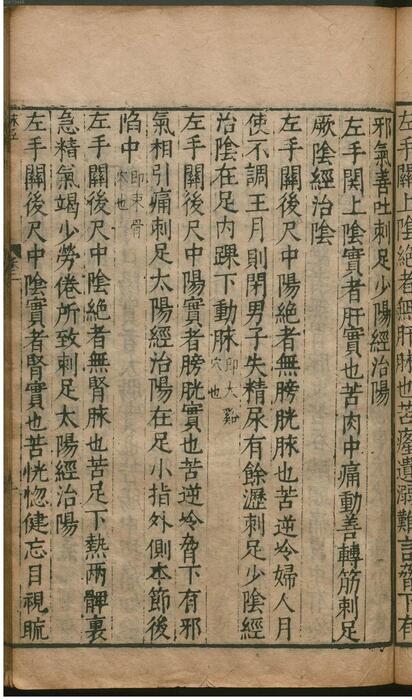 左手關上陰絕者無肝脉也苦癃遺溺難言脅下有
邪氣善吐刺足少陽經治陽
左手関上陰實者肝實也苦肉中痛動善轉筋刺足
厥陰經治陰
左手關後尺中陽絕者無膀胱脉也苦逆冷婦人月
使不調王月則閉男子失精尿有餘瀝刺足少陰經
治陰在足內踝下動脉即大谿穴也
左手關後尺中陽實者膀胱實也苦逆冷脅下有邪
氣相引痛刺足太陽經治陽在足小指外側本節後
陷中即束骨穴也
左手關後尺中陰絕者無腎脉也苦足下熱兩髀裏
急精氣竭少勞倦所致刺足太陽經治陽
左手關後尺中陰實者腎實也苦恍惚健忘目視䀮